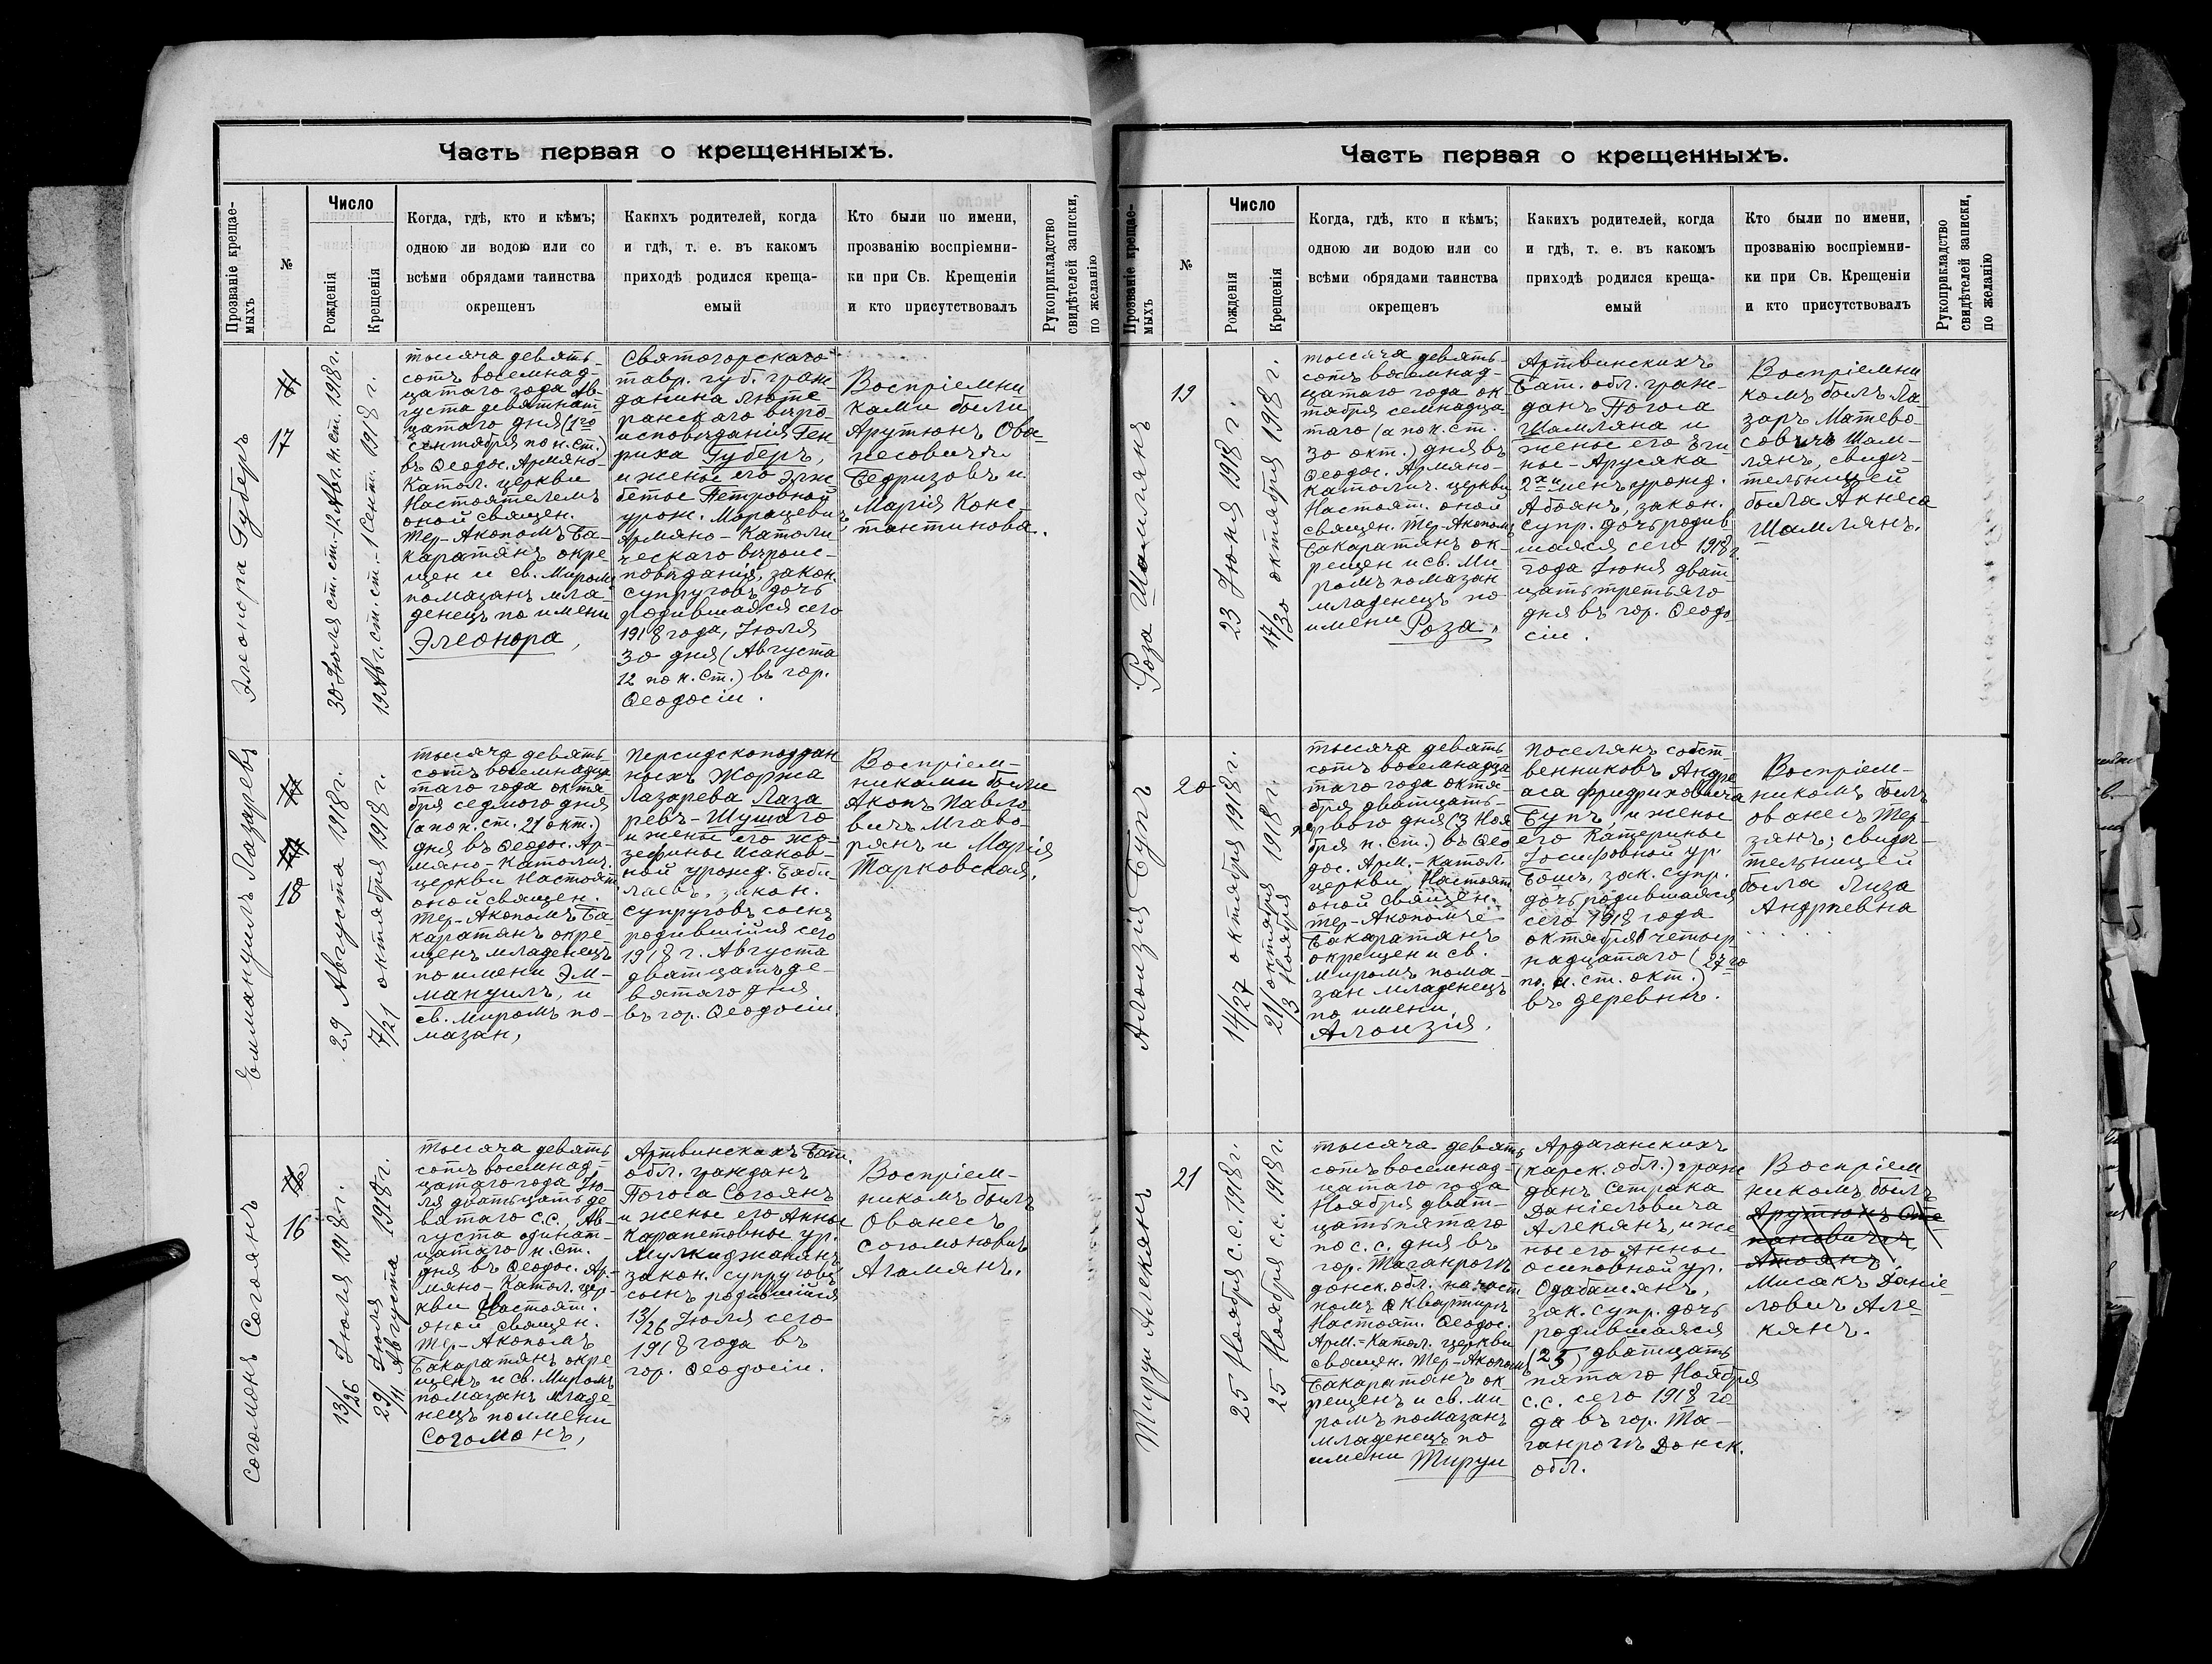 Часть первая о крещенныхъ.
Прозваніе крещае-
мыхъ
№
Число
Рожденія
Крещенія
Когда, гдѣ, кто и кѣмъ;
одною ли водою или со
всѣми обрядами таинства
окрещенъ
Какихъ родителей, когда
и гдѣ, т. е. въ какомъ
приходѣ родился креща-
емый
Кто были по имени,
прозванію воспріемни-
ки при Св. Крещеніи
и кто присутствовалъ
Рукоприкладство
свидѣтелей записки,
по желанію
Элеонора Губеръ
17
30 Іюля ст. ст. - 12 Авг. н. ст. 1918 г.
19 Авг. ст. ст. - 1 Сент. 1918 г.
тысяча девять
сотъ восемнад-
цатаго года Ав-
густа девятнат
цатаго дня (1го
сентября по н. ст.)
въ Ѳеодос. Армяно-
Катол. церкви
Настоятелемъ
оной священ.
Тер-Акопомъ Ба-
каратянъ окре-
щен и св. Миромъ
помазанъ мла-
денецъ по имени
Элеонора,
Святогорскаго
тавр. губ. граж
данина люте
ранскаго вѣро
исповѣданія Ген
риха Губеръ,
и жены его Элиз
бетые Петровной
урож. Морацевичъ,
Армяно-Католи
ческаго вѣроис-
повѣданія, закон.
супруговъ дочь
родившаяся сего
1918 года, Іюля
30 дня (Августа
12 по н. ст.) въ гор.
Ѳеодосіи.
Воспріемни
ками были
Арутюнъ Ова-
несовичъ
Феризовъ и
Марія Конс-
тантинова.
Еммануилъ Лазаревъ
18
29 Августа 1918 г.
7/21 октября 1918 г.
тысяча девять
сотъ восемнадца
таго года октя-
бря седмого дня
(а по н. ст. 21 окт.)
дня въ Ѳеодос. Ар-
мяно-Католич.
церкви Настоят.
оной священ.
Тер-Акопомъ Ба
каратянъ окре-
щенъ младенецъ
по имени Эм-
мануилъ, и
св. миромъ по-
мазан,
Персидскоподдан
ныхъ Жоржа
Лазарева Лаза
ревъ-Шушаго
и жены его Жо-
зефины Исаков-
ной урожд. Баби-
лаевъ, закон.
супруговъ сынъ
родившійся сего
1918 г. Августа
дватцать де-
вятаго дня
въ гор. Ѳеодосіи
Воспріем-
никами были
Акопъ Павло
вичъ Мгаво
рянъ и Марія
Тарковская.
Согомонъ Согоянъ
16
13/26 Іюля 1918 г.
29 Іюля/11 Августа 1918 г.
тысяча девять
сотъ восемнад-
цатаго года Ію-
ля дватьцать де
вятаго с.с., Ав-
густа одинат-
цатаго н. ст.
дня въ Ѳеодос. Ар-
мяно-Катол. цер-
кви Настоят.
оной священ.
Тер-Акопомъ
Бакаратянъ окре-
щенъ и св. Миромъ
помазанъ младе
нецъ по имени
Согомонъ,
Артвинскихъ Бат.
обл. гражданъ
Погоса Согоянъ
и жены его Анны
Карапетовные ур.
Мулкиджанянъ
закон. супруговъ
сынъ родившійся
13/26 Іюля сего
1918 года въ
гор. Ѳеодосіи.
Воспріем-
никомъ былъ
Ованесъ
Согомоновичъ
Агамянъ.
Часть первая о крещенныхъ.
Прозваніе крещае-
мыхъ
№
Число
Рожденія
Крещенія
Когда, гдѣ, кто и кѣмъ;
одною ли водою или со
всѣми обрядами таинства
окрещенъ
Какихъ родителей, когда
и гдѣ, т. е. въ какомъ
приходѣ родился креща-
емый
Кто были по имени,
прозванію воспріемни-
ки при Св. Крещеніи
и кто присутствовалъ
Рукоприкладство
свидѣтелей записки,
по желанію
Роза Шамлянъ
19
23 Іюня 1918 г.
17/30 октября 1918 г.
тысяча девять-
сотъ восемнад-
цатаго года ок-
тября семнадца
таго (а по н. ст.
30 окт.) дня въ
Ѳеодос. Армяно-
католич. церкви
Настоят. оной
священ. Тер-Акопомъ
Бакаратян ок-
рещен и св. Ми-
ромъ помазан
младенецъ по
имени Роза.
Артвинскихъ
Бат. обл. граж-
данъ Погоса
Шамляна и
жены его Эги
ны-Арусяка
2хъ именъ урожд.
Абоянъ, закон.
супр. дочь родив
шаяся сего 1918 г.
года Іюня дват
цать третьяго
дня въ гор. Ѳеодо
сіи.
Воспріемни
комъ былъ Ла
заръ Матево
совичъ Шам-
лянъ, свидѣ-
тельницей
была Акнеса
Шамлянъ.
Алоизія Бупъ
20
14/27 октября 1918 г.
21 октября/3 Ноября 1918 г.
тысяча девять
сотъ восемнадца
таго года октя-
бря дватцать-
перваго дня (3 Ноя
бря н. ст.) въ Ѳео
дос. Арм.-Катол.
церкви Настоят.
оной священ.
тер-Акопомъ
Бакаратянъ
окрещен и св.
Миромъ пома-
зан младенецъ
по имени
Алоизія.
Поселянъ собст
венниковъ Андре
аса Фридриховича
Бупъ, и жены
его Катерины
Іосифовной ур.
Бошъ, зак. супр.
дочь родившаяся
сего 1918 года
октября четыр
надцатаго (27го
по н. ст. окт.)
въ деревнѣ.
Воспріем-
никомъ былъ
Ованесъ Тер-
зянъ; свидѣ-
тельницей
была Лиза
Андреевна
. . . . .
Тирун Алекянъ
21
25 Ноября с.с. 1918 г.
25 Ноября с.с. 1918 г.
тысяча девять
сотъ восемнад-
цатаго года
Ноября дват-
цать пятаго
по с.с. дня въ
гор. Таганрогѣ
донск. обл. на част
номъ квартирѣ
Настоят. Ѳеодос.
Арм.-Катол. церкви
священ. Тер-Акопомъ
Бакаратянъ ок-
рещенъ и св. Ми-
ромъ помазанъ
младенецъ по
имени Тирун
Ардаганскихъ
(карск. обл.) граж
данъ Сетрака
Даніеловича
Алекянъ, и же
ны его Анны
Осиповной ур.
Одабашянъ,
зак. супр. дочь
родившаяся
(25) дватцать
пятаго Ноября
с.с. сего 1918 го
да въ гор. Та-
ганрогѣ Донск.
обл.
Воспріем
никомъ былъ
Арутюнъ Сте
пановичъ
Атоянъ.
Мисакъ Даніе-
ловичъ Але
кянъ.